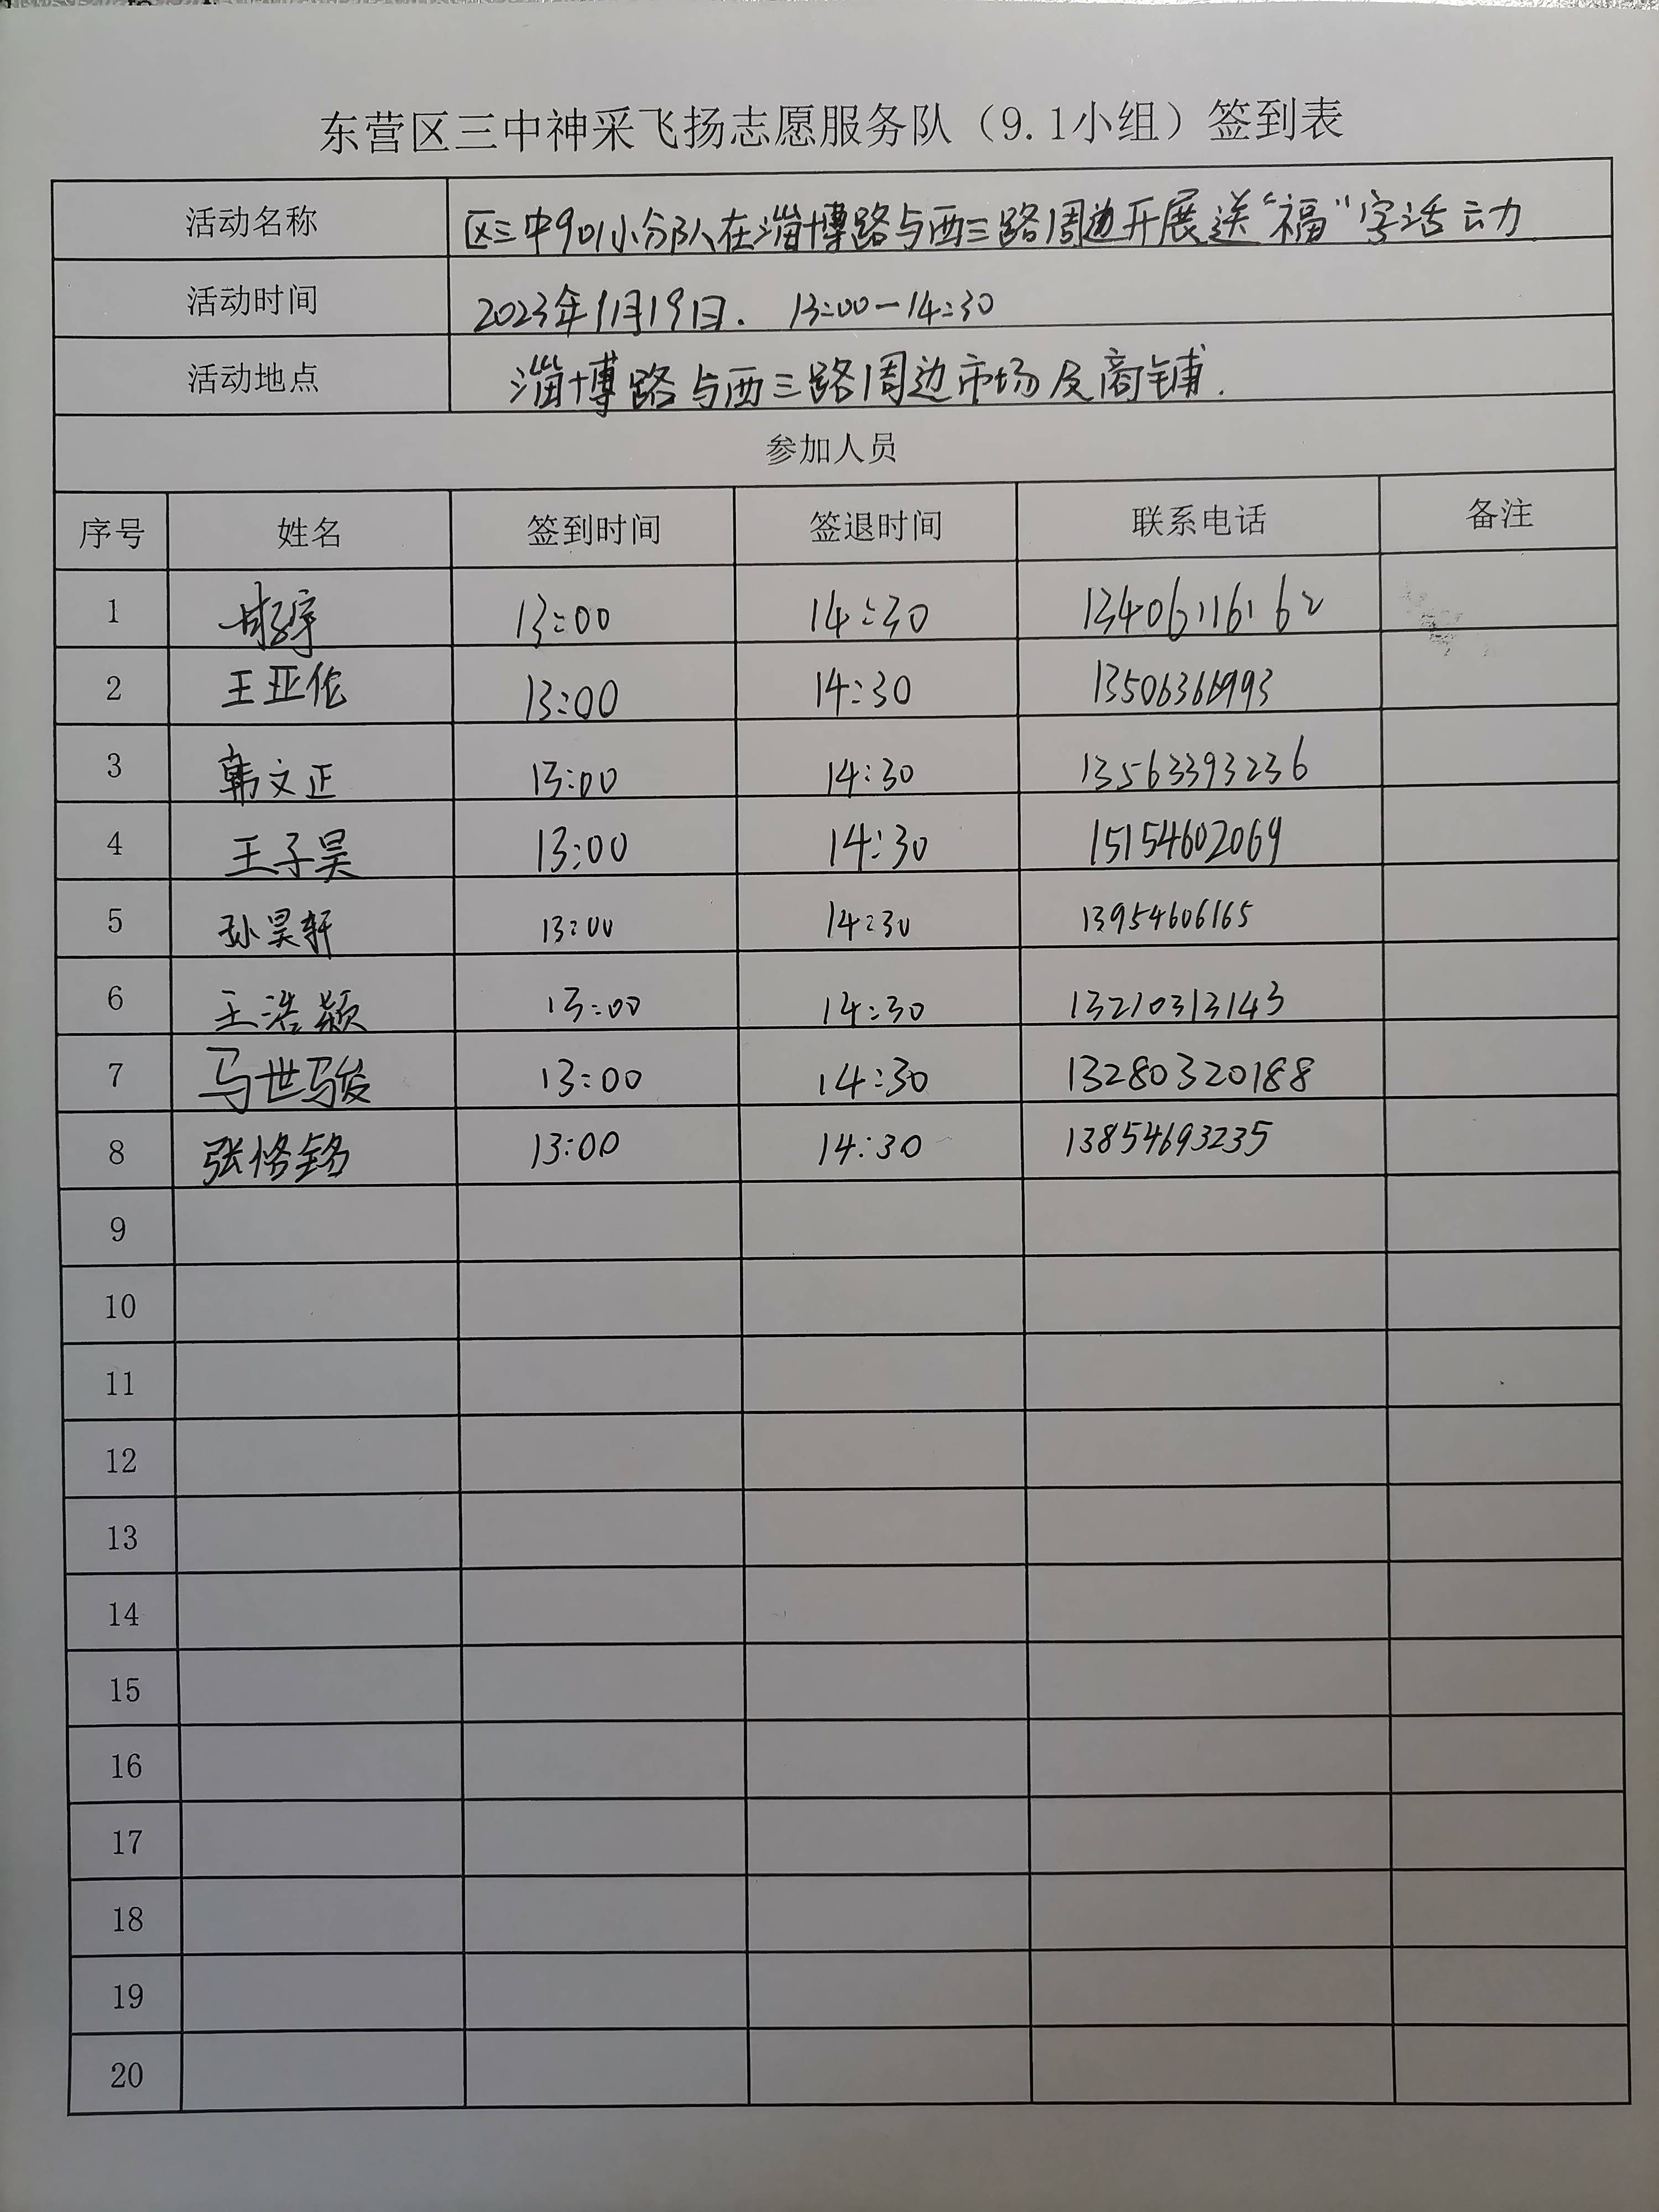 东营区三中神采飞扬志愿服务队（9.1小组）签到表
活动名称 区三中901小分队在淄博路与西三路周边开展送“福”字活动
活动时间 2023年1月19日. 13:00-14:30
活动地点 淄博路与西三路周边市场及商铺.
参加人员
序号 姓名 签到时间 签退时间 联系电话 备注
1 13:00 14:30 13406116162
2 王亚伦 13:00 14:30 13506366993
3 韩文正 13:00 14:30 13563393236
4 王子昊 13:00 14:30 15154602069
5 孙昊轩 13:00 14:30 13954606165
6 王浩颖 13:00 14:30 13210313143
7 马世骏 13:00 14:30 13280320188
8 张恪铭 13:00 14:30 13854693235
9
10
11
12
13
14
15
16
17
18
19
20